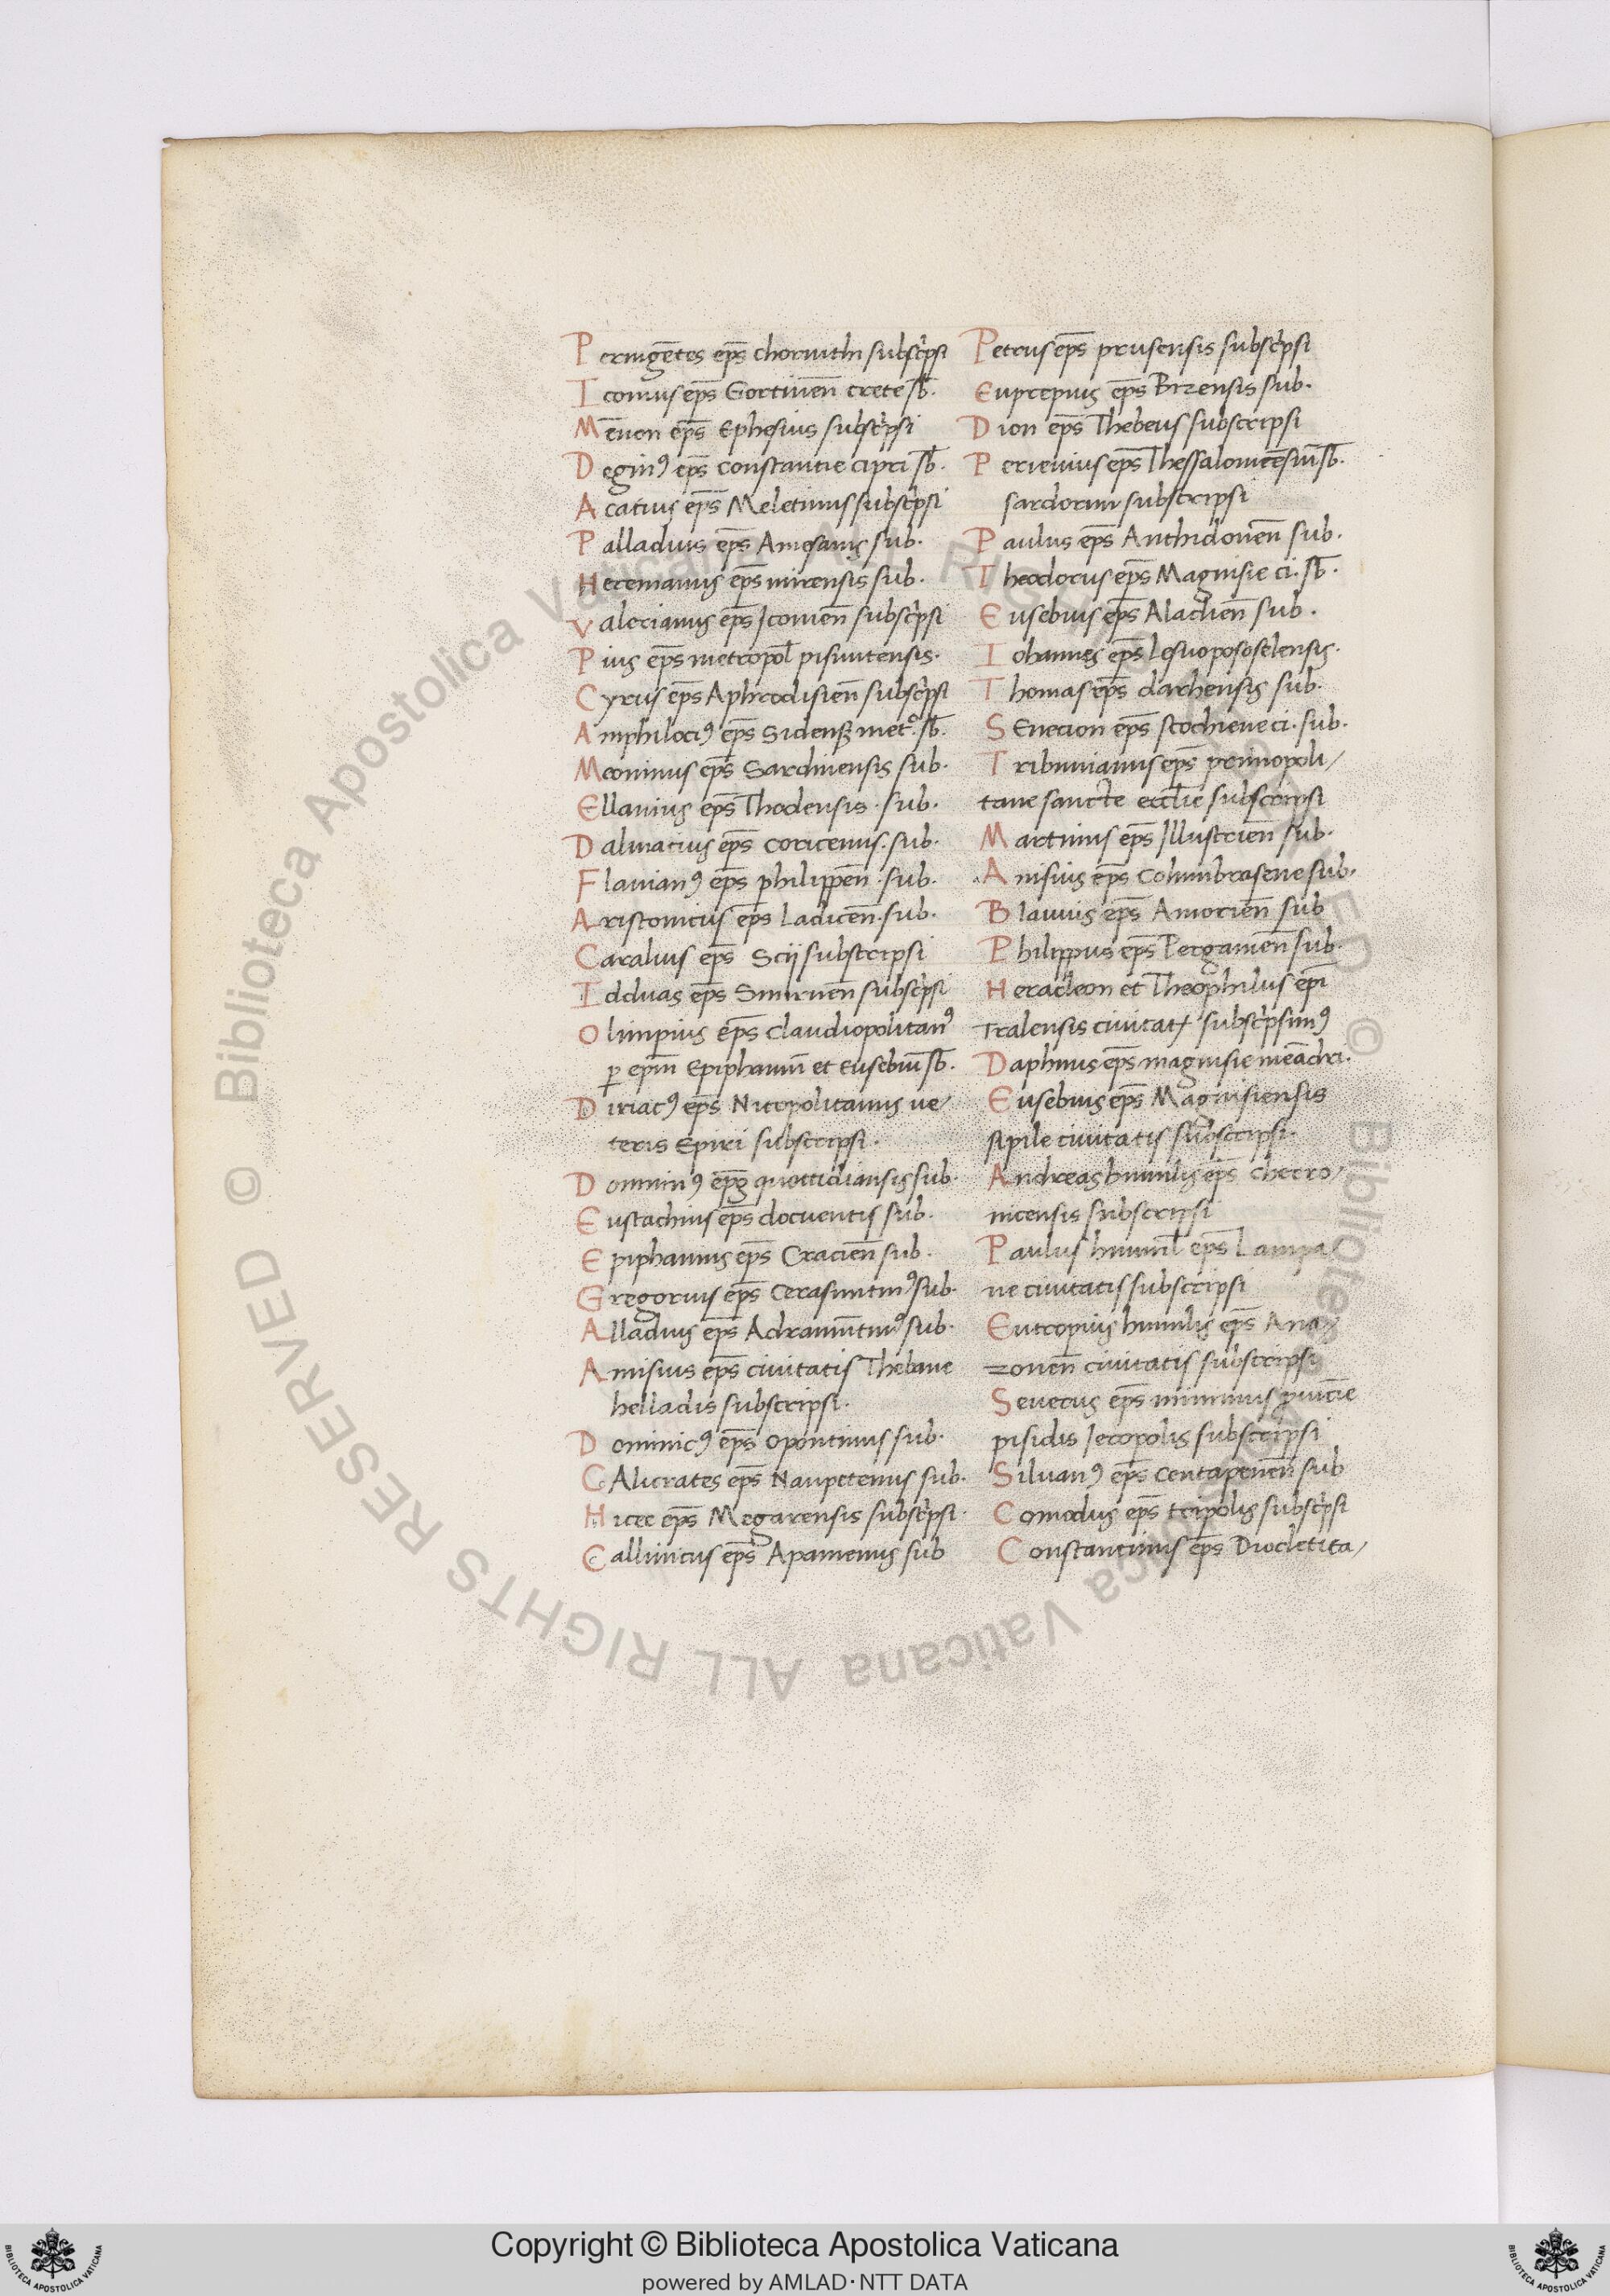 Peringētes ep̄s chorinthi subsc̍psi
Iconius ep̄s Gortineñ crete sb̄.
Mēnon ep̄s Ephesius subsc̍psi
Deginꝰ ep̄s constantie cipri sb̄.
Acatius ep̄s Meletinus subsc̍psi
Palladius ep̄s Amasanus sub.
Heremanus ep̄s mirensis sub.
Valerianus ep̄s Iconieñ subsc̍psi
Pius ep̄s metropol̄ pisinutensis.
Cyrus ep̄s Aphrodisieñ subsc̍psi
Amphilociꝰ ep̄s Sidens⁊ met°. sb̄.
Meoninus ep̄s Sardinensis sub.
Ellanius ep̄s Thodensis. sub.
Dalmatius ep̄s coricenus. sub.
Flauianꝰ ep̄s philippeñ. sub.
Aristonicus ep̄s Ladiceñ. sub.
Caralius ep̄s Scij subscripsi
Idduas ep̄s Smirneñ subsc̍psi
Olimpius ep̄s claudiopolitanꝰ
ꝑ ep̄m Epiphaniū et Eusebiū sb̄.
Diriacꝰ ep̄s Nicopolitanus ue/
teris Epiri subscripsi.
Domninꝰ ep̄s quottidiansis sub.
Eustachius ep̄s docuentis sub.
Epiphanius ep̄s Cracieñ sub.
Gregorius ep̄s Cerasuntinꝰ sub.
Alladius ep̄s Adramūtinꝰ sub.
Amisius ep̄s ciuitatis Thebane
helladis subscripsi.
Dominicꝰ ep̄s opontinus sub.
CAlicrates ep̄s Naupctenus sub.
Hicec ep̄s Megarensis subsc̍psi.
Callinicus ep̄s Apamenus sub
Petrus ep̄s prusensis subsc̍psi
Euprepius ep̄s Bizensis sub.
Dion ep̄s Thebeus subscripsi
Perienius ep̄s Thessalonicēsiū sb̄.
sardorum subscripsi
Paulus ep̄s Anthidoneñ sub.
Theodorus ep̄s Magnisie ci. sb̄.
Eusebius ep̄s Aladieñ sub.
Iohannes ep̄s Lesuopososelensis.
Thomas ep̄s darhensis sub.
SEnecion ep̄s scochiene ci. sub.
Tribunianus ep̄s peniopoli/
tane sancte eccl̄ie subscripsi
Martinus ep̄s Illustrieñ sub.
Anisius ep̄s Colunbrasene sub.
Blanius ep̄s Amorieñ sub
Philippus ep̄s Pergameñ sub.
Heracleon et Theophilus ep̄i
Tralensis ciuitat⁊ subsc̍psimꝰ
Daphnus ep̄s magnisie meādri.
Eusebius ep̄s Magnisiensis
sipile ciuitatis subscripsi.
Andreas humilis ep̄s checro/
nicensis subscripsi
Paulus humil̄ ep̄s Lampa/
ne ciuitatis subscripsi
Eutropius humilis ep̄s Ana/
zoneñ ciuitatis subscripsi
Seuerus ep̄s minimus ꝓuicīe
pisidis Iecopolis subscripsi
Siluanꝰ ep̄s centapeneñ sub
Comodus ep̄s tripolis subsc̍psi
Constantinus ep̄s Diocletita/
© Biblioteca Apostolica Vaticana ALL RIGHTS RESERVED
Copyright © Biblioteca Apostolica Vaticana
powered by AMLAD·NTT DATA
BIBLIOTECA APOSTOLICA VATICANA
BIBLIOTECA APOSTOLICA VATICANA